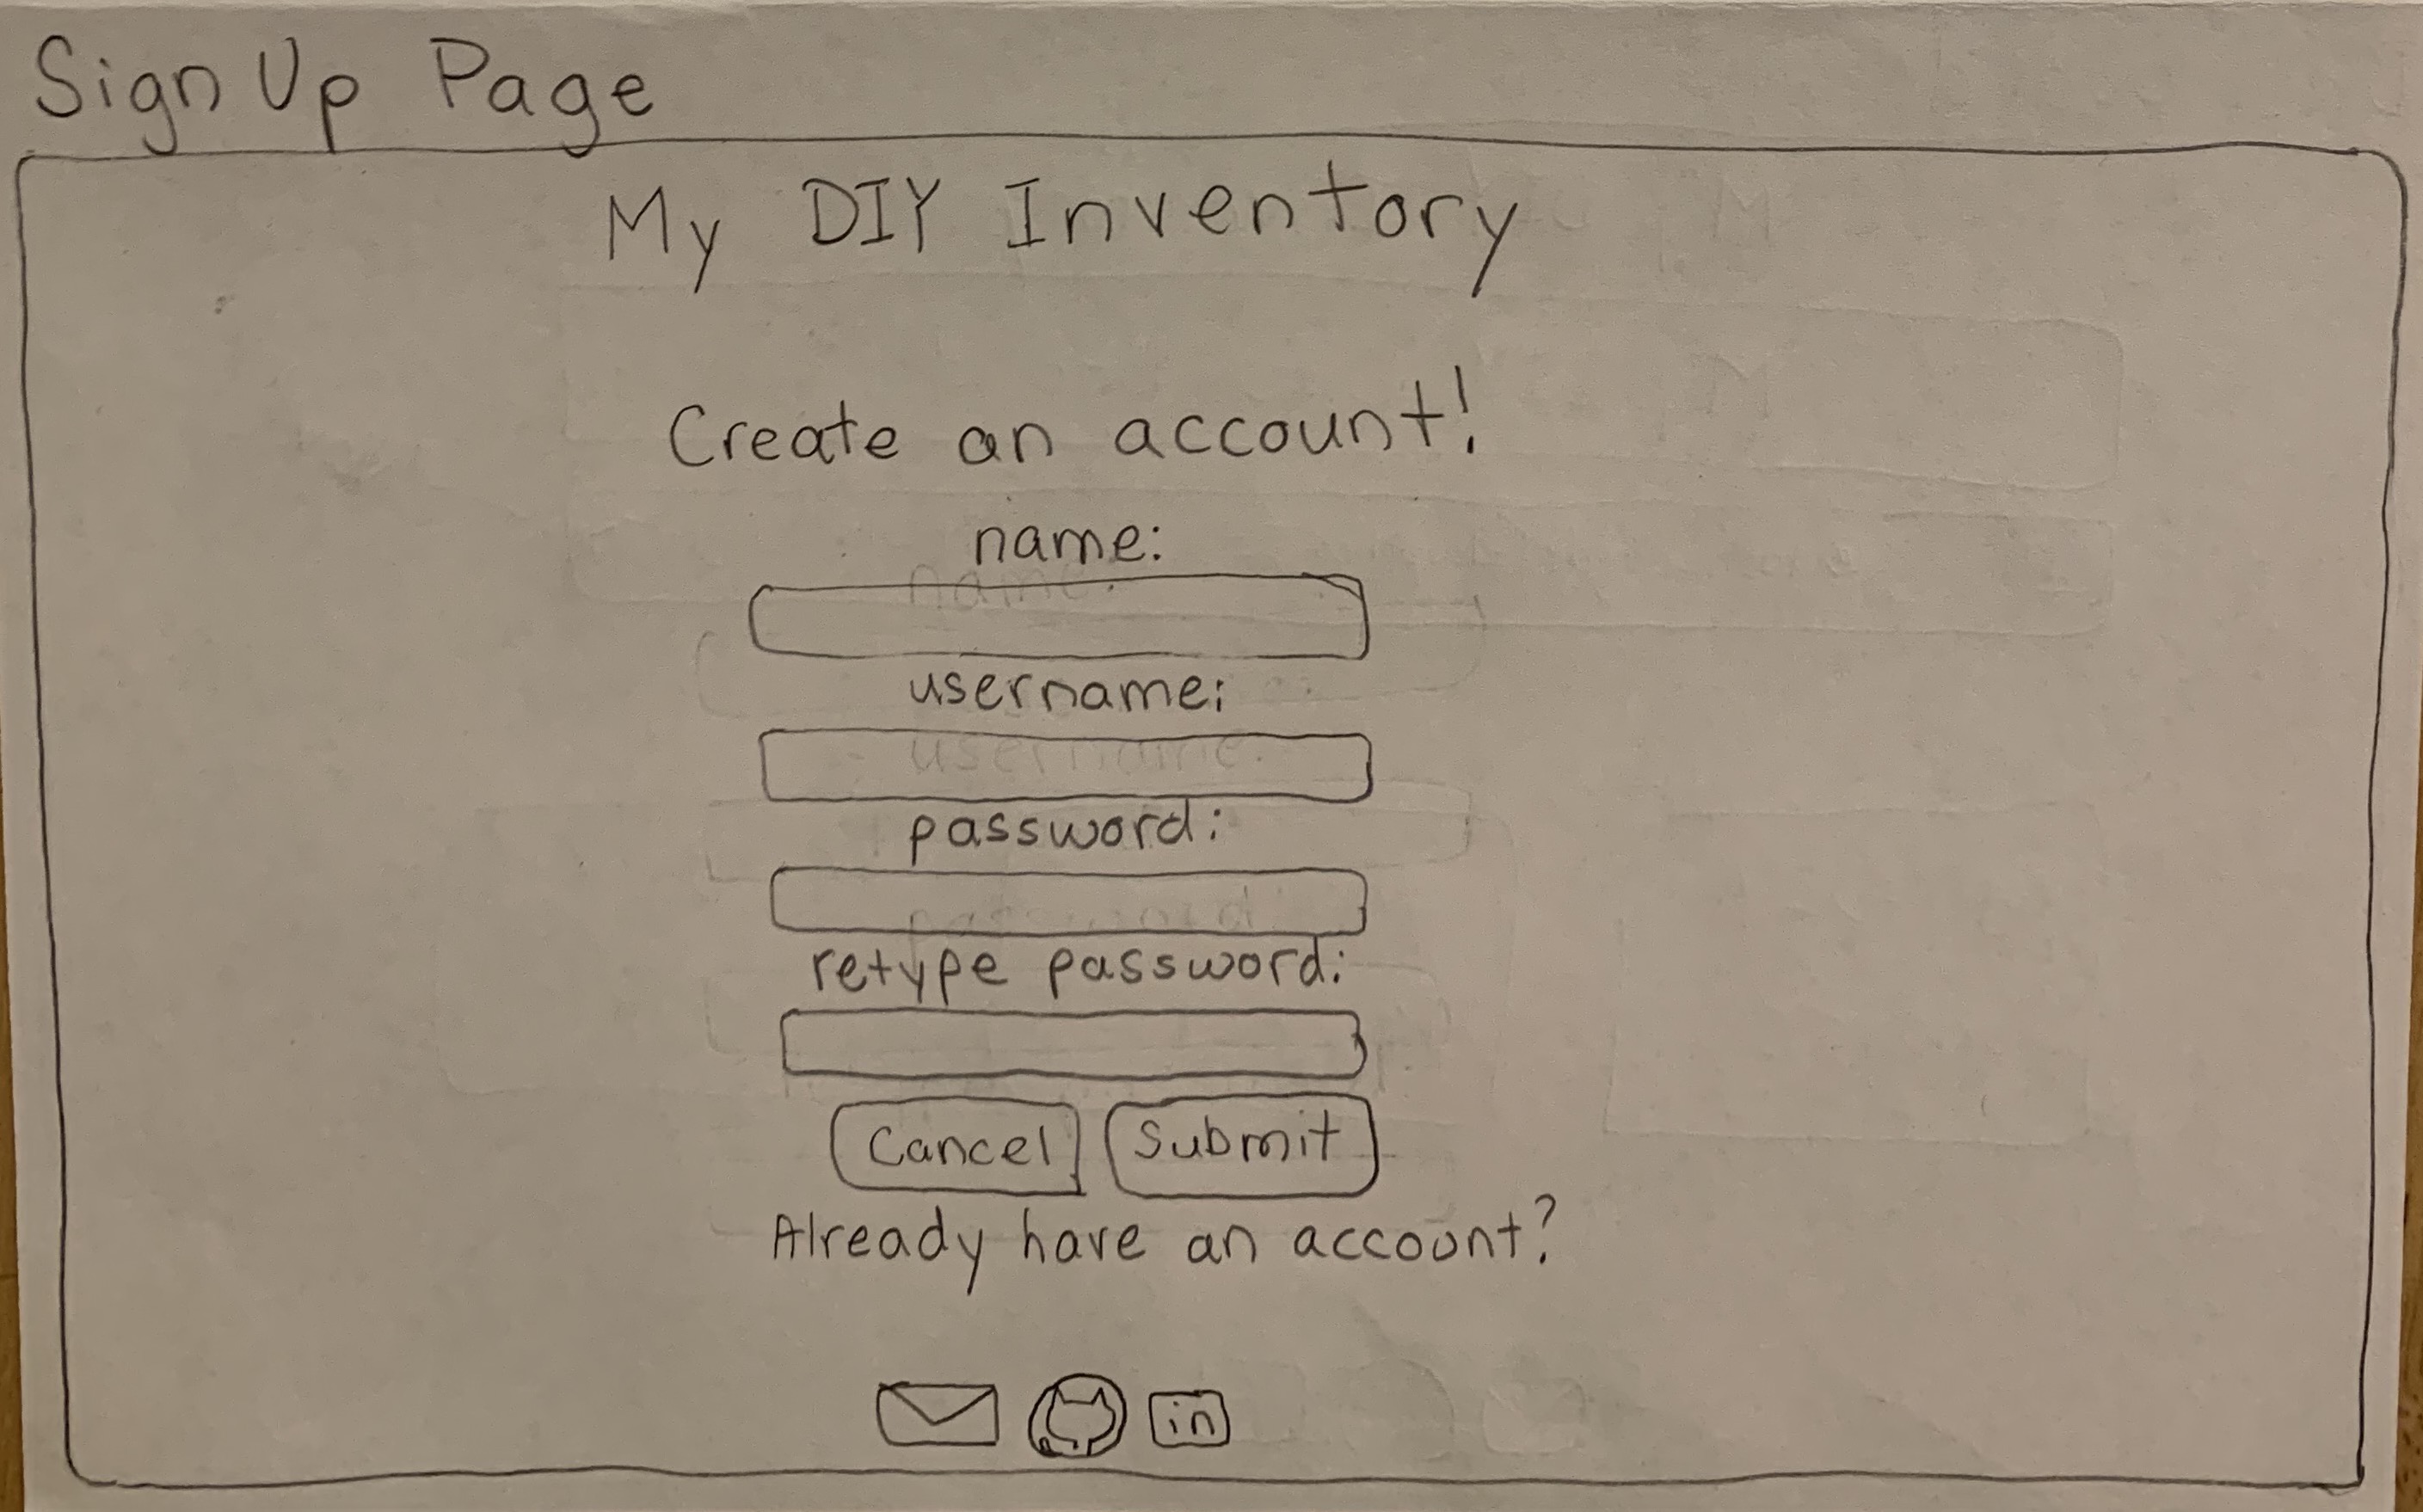 Sign Up Page
My DIY Inventory
Create an account!
name:
username:
password:
retype password:
Cancel Submit
Already have an account?
in